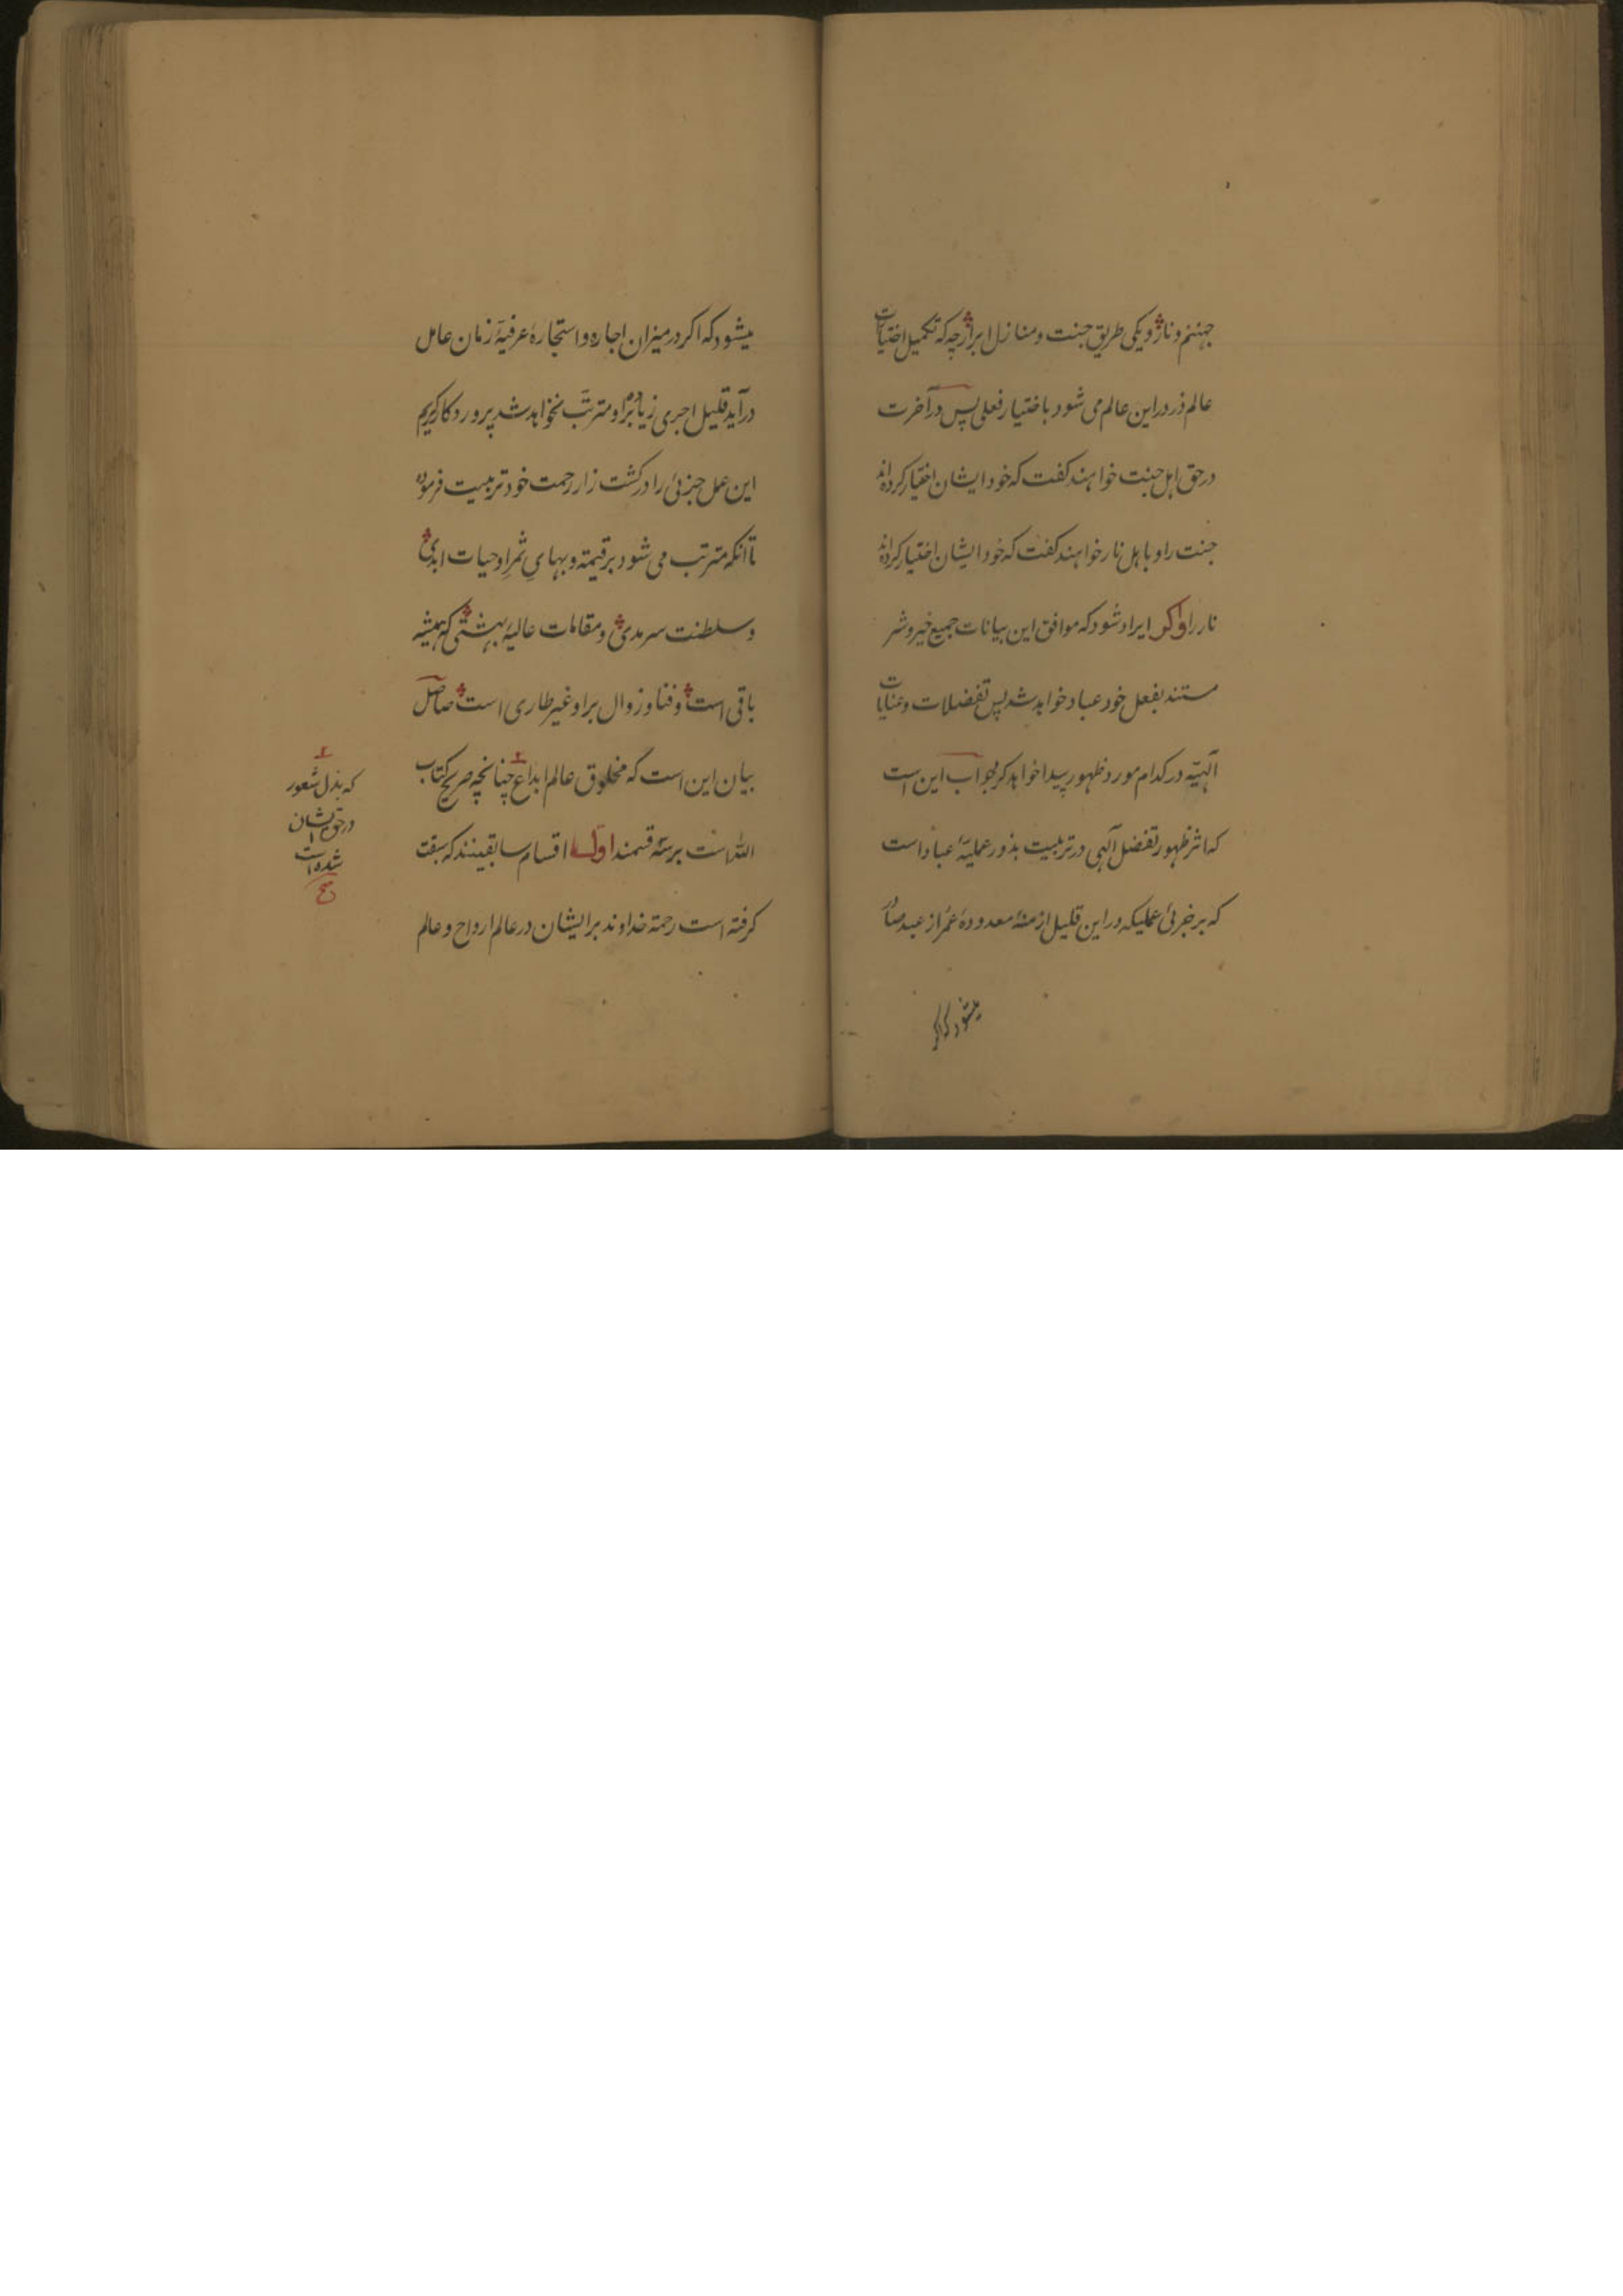 جهنم و نار و یکی طریق جنت و منازل ابرار چه که تکمیل اختیارات
عالم ذر در این عالم می شود باختیار فعلی پس در آخرت
در حق اهل جنت خواهند کفت که خود ایشان اختیار کرده اند
جنت را و باهل نار خواهند کفت که خود ایشان اختیار کرده اند
نار را و اکر ایراد شود که موافق این بیانات جمیع خیر و شر
مستند بفعل خود عباد خواهد شد پس تفضلات و عنایات
آلهیّه در کدام مورد ظهور پیدا خواهد کرد جواب این است
که اثر ظهور تفضل آلهی در تربیت بذور عملیّهٔ عباد است
که هر جزئی عملیکه در این قلیل ازمنهٔ معدودهٔ عمر از عبد صادر
میشود که اکر
میشود که اکر در میزان اجاره و استجارهٔ عرفیّهٔ زمان عامل
در آید قلیل اجری زیاده براو مترتّب نخواهد شد پروردکار کریم
این عمل جزئی را در کشت زار رحمت خود تربیت فرموده
تا آنکه مترتب می شود بر قیمة و بهای ثمر او حیات ابدی
و سلطنت سرمدی و مقامات عالیهٔ بهشتی که همیشه
باقی است و فنا و زوال بر او غیر طاری است حاصل
بیان این است که مخلوق عالم ابداع چنانچه صریح کتاب
الله است بر سه قسمند اول اقسام سابقینند که سبقت
کرفته است رحمة خداوند بر ایشان در عالم ارواح و عالم
که بذل شعور
در حق ایشان
شده است
صح